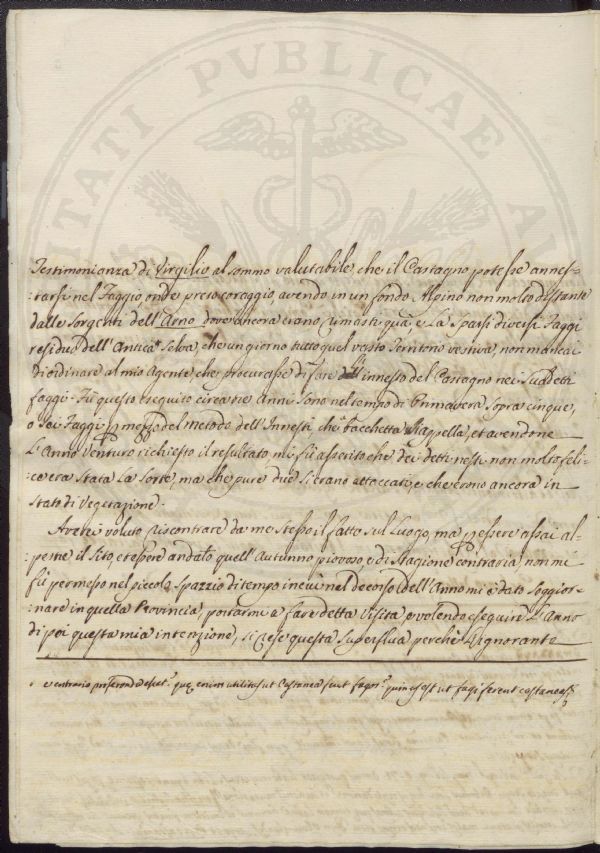 TATI PVBLICAE
Testimonianza di Virgilio al sommo valutabile, che il Castagno potesse annes-
:tarsi nel Faggio, onde preso coraggio, avendo in un fondo Alpino non molto distante
dalle Sorgenti dell'Arno dove ancora erano rimasti quà, e La Sparsi diversi Faggi
residui dell'Antica Selva, che un giorno tutto quel vasto Territorio vestiva, non mancai
di ordinare al mio Agente, che procurasse di fare l'innesto del Castagno nei Sud.detti
faggi. Fù questo eseguito circa tre anni sono nel tempo di Primavera sopra cinque,
o Sei Faggi p mezzo del metodo dell'Innesti che Bacchetta s'appella, et avendone
L'Anno venturo richiesto il resultato mi fù asserito che dei detti nesti non molto feli-
:ce era stata La Sorte, ma che pure due si erano attaccati, e che erono ancora in
Stato di Vegetazione.
Averei voluto riscontrare da me Stesso il fatto sul Luogo, ma p essere assai al-
:pestre il Sito, e essere andato quell'Autunno piovoso, e di Stagione contraria, non mi
fù permesso nel piccolo Spazzio di tempo in cui nel decorso dell'Anno mi è dato Soggior-
:nare in quella Provincia, portarmi a fare detta Visita, e volendo eseguire L'Anno
di poi questa mia intenzione, si rese questa Superflua perchè L'ignorante
e contrario que enim utilitas ut Castanea ut fagi ferent castaneas